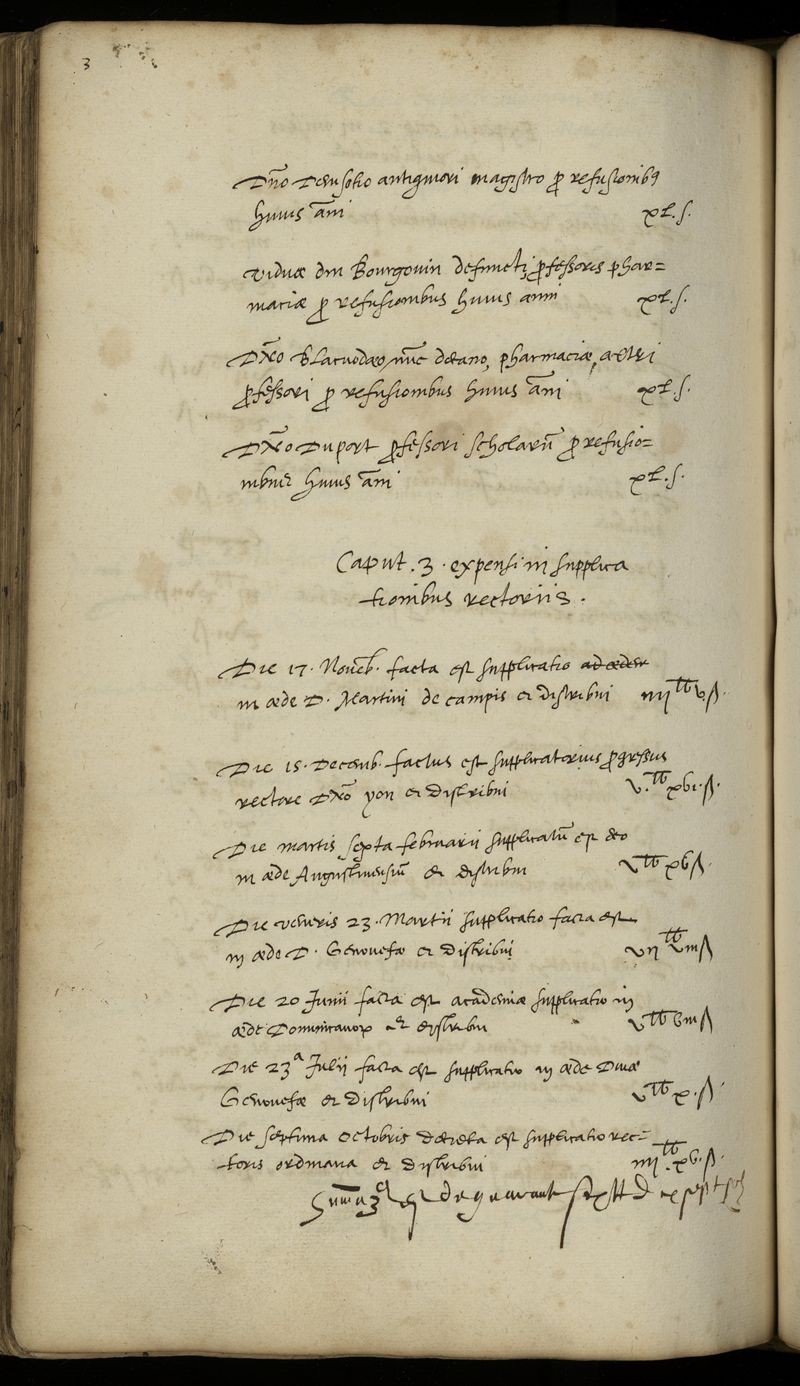 3
Dño antiquiori magistro p refusionibus
huius añi xl. s.
viduæ dni Bourgouin defuncti pfessoris phar=
maciæ p refusionibus huius anni xl. s.
Dño Blacuodæo nũc decano, pharmaciæ alteri
pfessori p refusionibus huius añi xl. s.
Dño Duport pfessori scholarũ p refusio=
nibus huius añi xl. s.
Caput .3. expensi in supplica
tionibus rectoriis.
Die 17. Nouẽb. facta est supplicatio ad ædem
in æde D. Martini de campis et distribui iiij lb v s.
Die 15. Decemb. factus est supplicatorius pgressus
rectore Dño yon et distribui v. lb xvi. s.
Die martis sexta februarii supplicatũ est deo
in æde Augustinensiũ et distribui v lb xv s.
Die veneris 23. Martii supplicatio facta est
in æde D. Genouefæ et distribui vii lb viii s
Die 20 Junii facta est academiæ supplicatio in
æde Dominicanorum et distribui v lb viii s
Die 23a Julii facta est supplicatio in æde Diuæ
Genouefæ et distribui v lb x. s.
Die septima octobris decreta est supplicatio rec=
toris ordinaria et distribui iiij lb. xv. s.
Summa 3 cl est de quarante